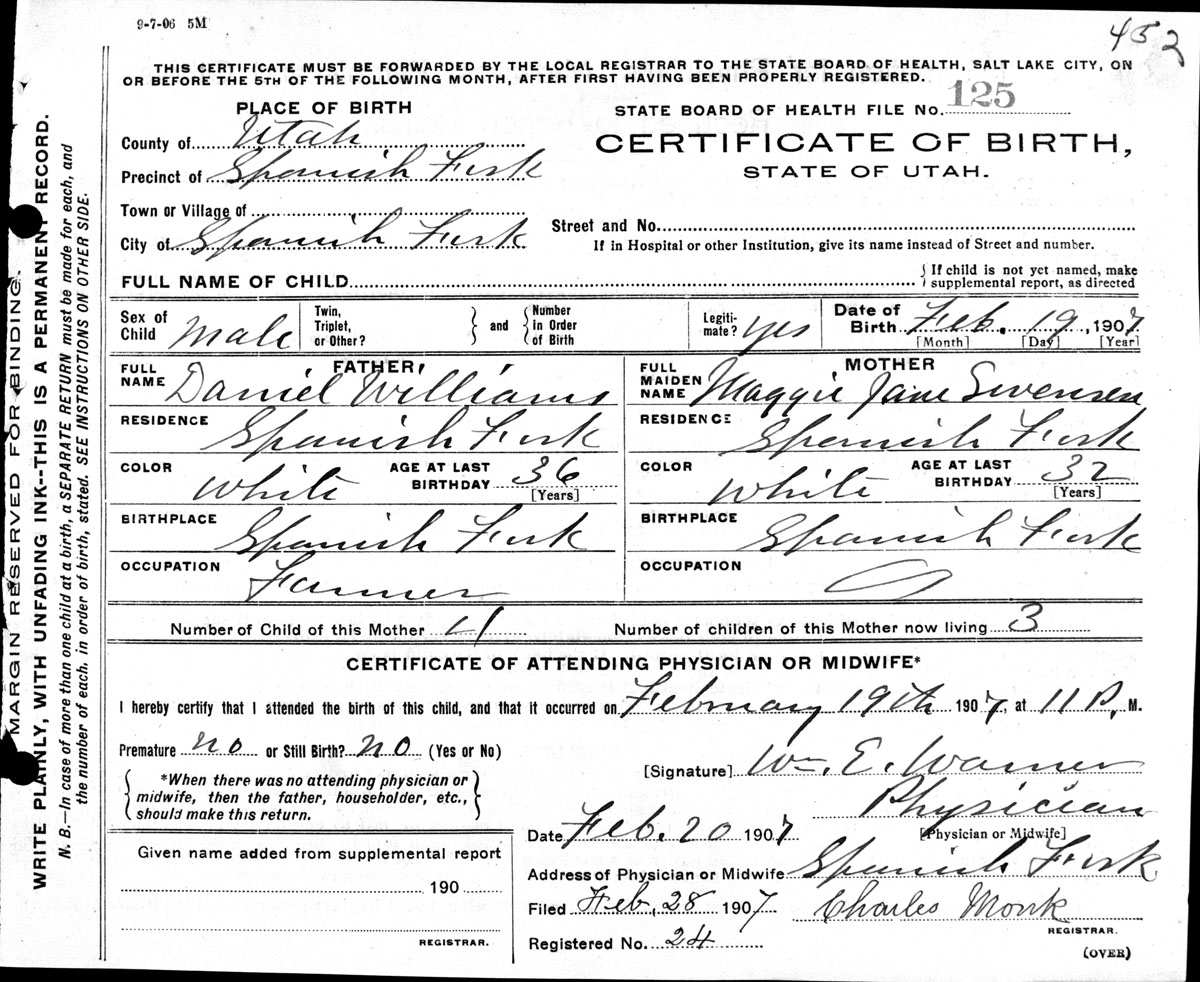 9-7-06 5M
452
THIS CERTIFICATE MUST BE FORWARDED BY THE LOCAL REGISTRAR TO THE STATE BOARD OF HEALTH, SALT LAKE CITY, ON
OR BEFORE THE 5TH OF THE FOLLOWING MONTH, AFTER FIRST HAVING BEEN PROPERLY REGISTERED.
PLACE OF BIRTH
STATE BOARD OF HEALTH FILE No. 125
County of Utah
CERTIFICATE OF BIRTH,
Precinct of Spanish Fork
STATE OF UTAH.
Town or Village of
Street and No.
City of Spanish Fork
If in Hospital or other Institution, give its name instead of Street and number.
FULL NAME OF CHILD
{If child is not yet named, make
supplemental report, as directed
Sex of Child Male
Twin, Triplet, or Other? } and { Number in Order of Birth
Legiti-mate? yes
Date of Birth Feb. 19, 1907
[Month] [Day] [Year]
FATHER
FULL NAME Daniel Williams
MOTHER
FULL MAIDEN NAME Maggie Jane Swensen
RESIDENCE Spanish Fork
RESIDENCE Spanish Fork
COLOR White AGE AT LAST BIRTHDAY 36 [Years]
COLOR White AGE AT LAST BIRTHDAY 32 [Years]
BIRTHPLACE Spanish Fork
BIRTHPLACE Spanish Fork
OCCUPATION Farmer
OCCUPATION
Number of Child of this Mother 4
Number of children of this Mother now living 3
CERTIFICATE OF ATTENDING PHYSICIAN OR MIDWIFE*
I hereby certify that I attended the birth of this child, and that it occurred on February 19th 1907, at 11 P, M.
Premature no or Still Birth? no (Yes or No)
[Signature] Wm. E. Warner
{ *When there was no attending physician or
midwife, then the father, householder, etc.,
should make this return. }
Physician
[Physician or Midwife]
Date Feb. 20 1907
Given name added from supplemental report
190
REGISTRAR.
Address of Physician or Midwife Spanish Fork
Filed Feb, 28 1907 Charles Monk
REGISTRAR.
Registered No. 24
(OVER)
MARGIN RESERVED FOR BINDING.
WRITE PLAINLY, WITH UNFADING INK--THIS IS A PERMANENT RECORD.
N. B.—In case of more than one child at a birth, a SEPARATE RETURN must be made for each, and
the number of each, in order of birth, stated. SEE INSTRUCTIONS ON OTHER SIDE.